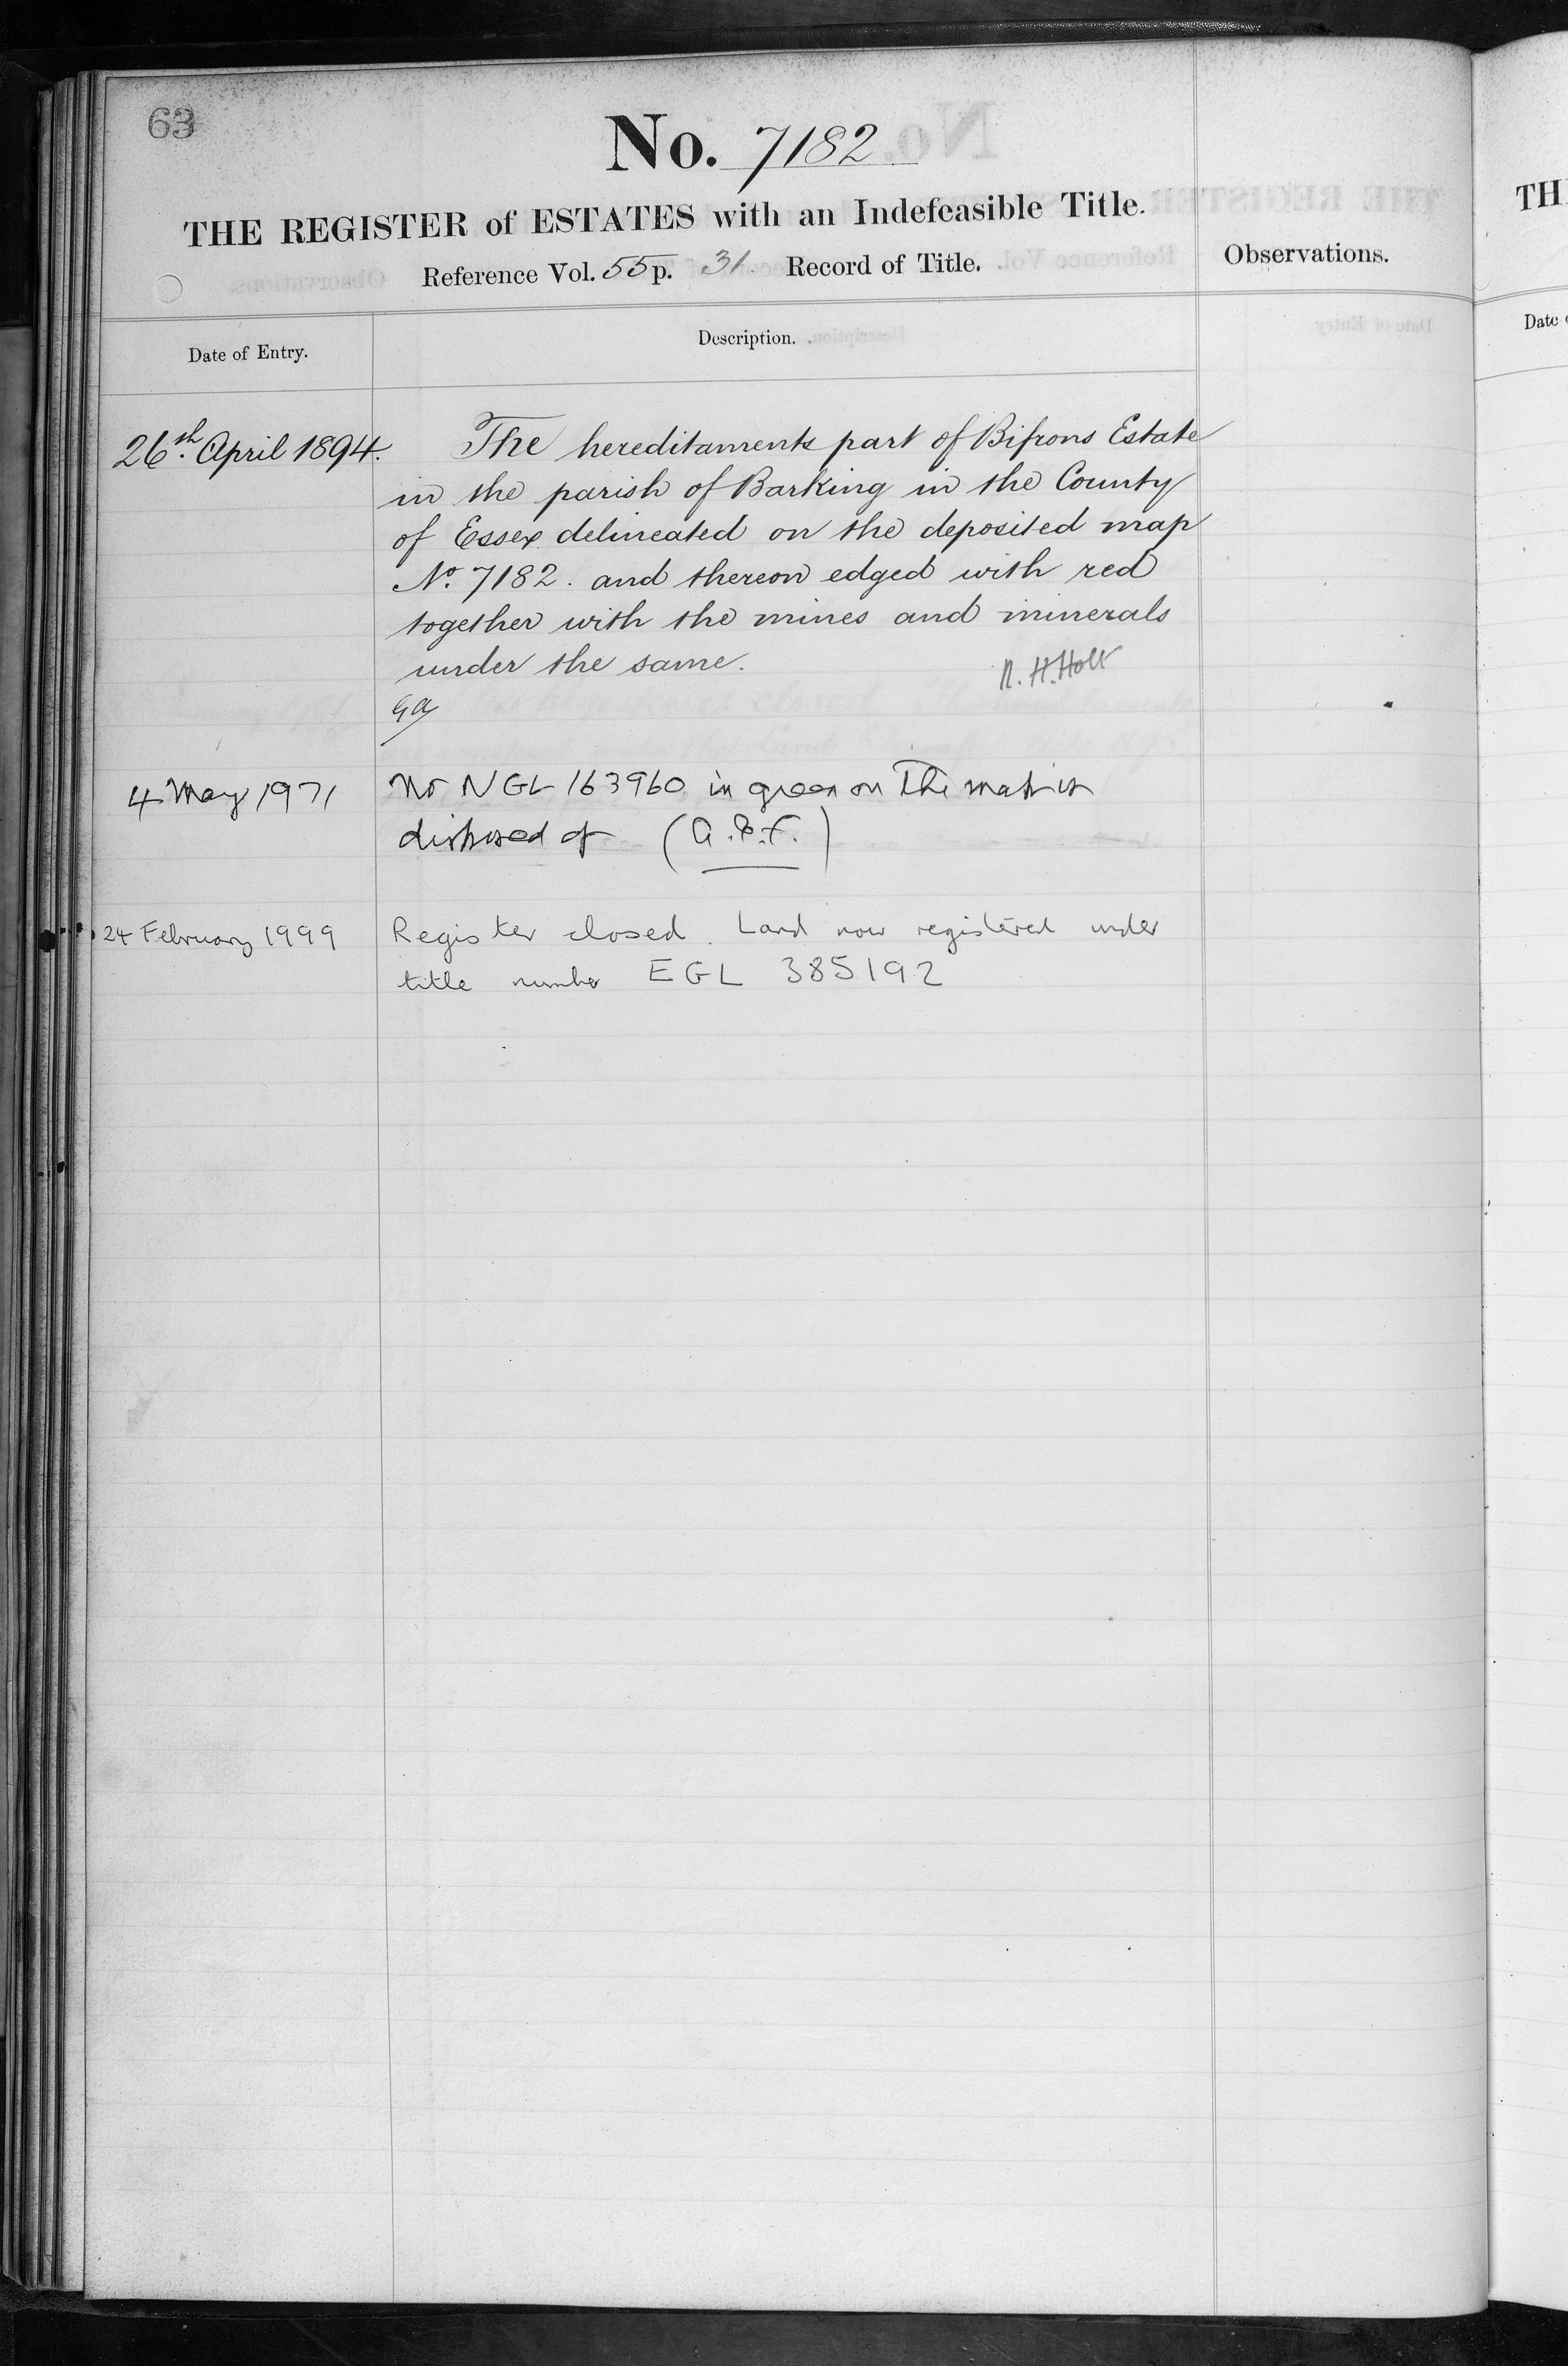 63
No. 7182
THE REGISTER of ESTATES with an Indefeasible Title.
Reference Vol. 55 p. 31 Record of Title.
Observations.
Date of Entry.
Description.
26th. April 1894.
The hereditaments part of Bifrons Estate
in the parish of Barking in the County
of Essex delineated on the deposited map
No. 7182. and thereon edged with red
together with the mines and minerals
under the same.
R. H. Holt
GA
4 May 1971
No NGL 163960 in green on The map is
disposed of (A.P.F.)
24 February 1999
Register closed. Land now registered under
title number EGL 385192
TH
Date